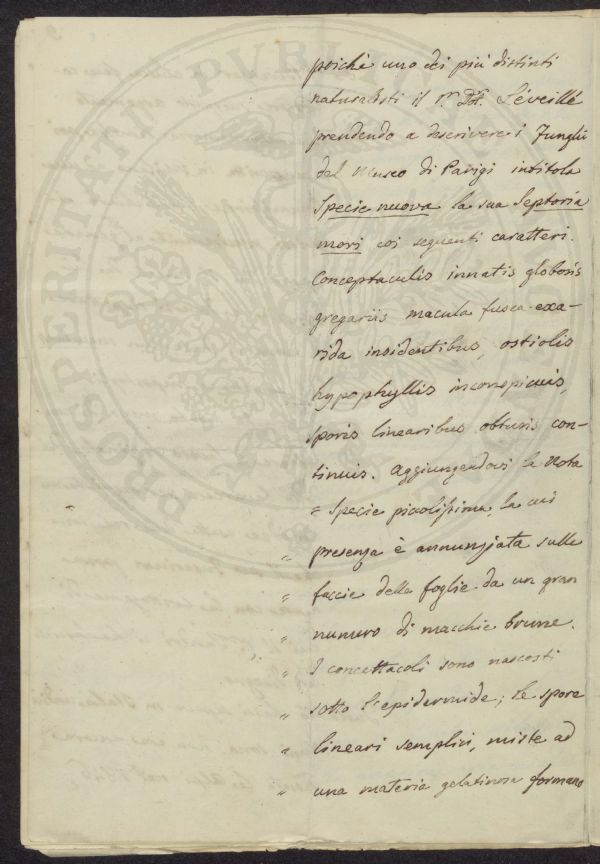 poichè uno dei più distinti
naturalisti il Sr. Dot. Léveillé
prendendo a descrivere i Funghi
del Museo di Parigi intitola
Specie nuova la sua Septoria
mori coi seguenti caratteri.
Conceptaculis innatis globosis
gregariis macula fusca-exa-
rida insidentibus, ostiolis
hypophyllis inconspicuis,
sporis linearibus obtusis con-
tinuis. Aggiungendovi la Nota
" Specie piccolissima, la cui
" presenza è annunziata sulle
" faccie della foglie da un gran
" numero di macchie brune.
" I concettacoli sono nascosti
" sotto l'epidermide; le spore
" lineari semplici, miste ad
" una materia gelatinosa formano
PROSPERITATI PUBLICAE